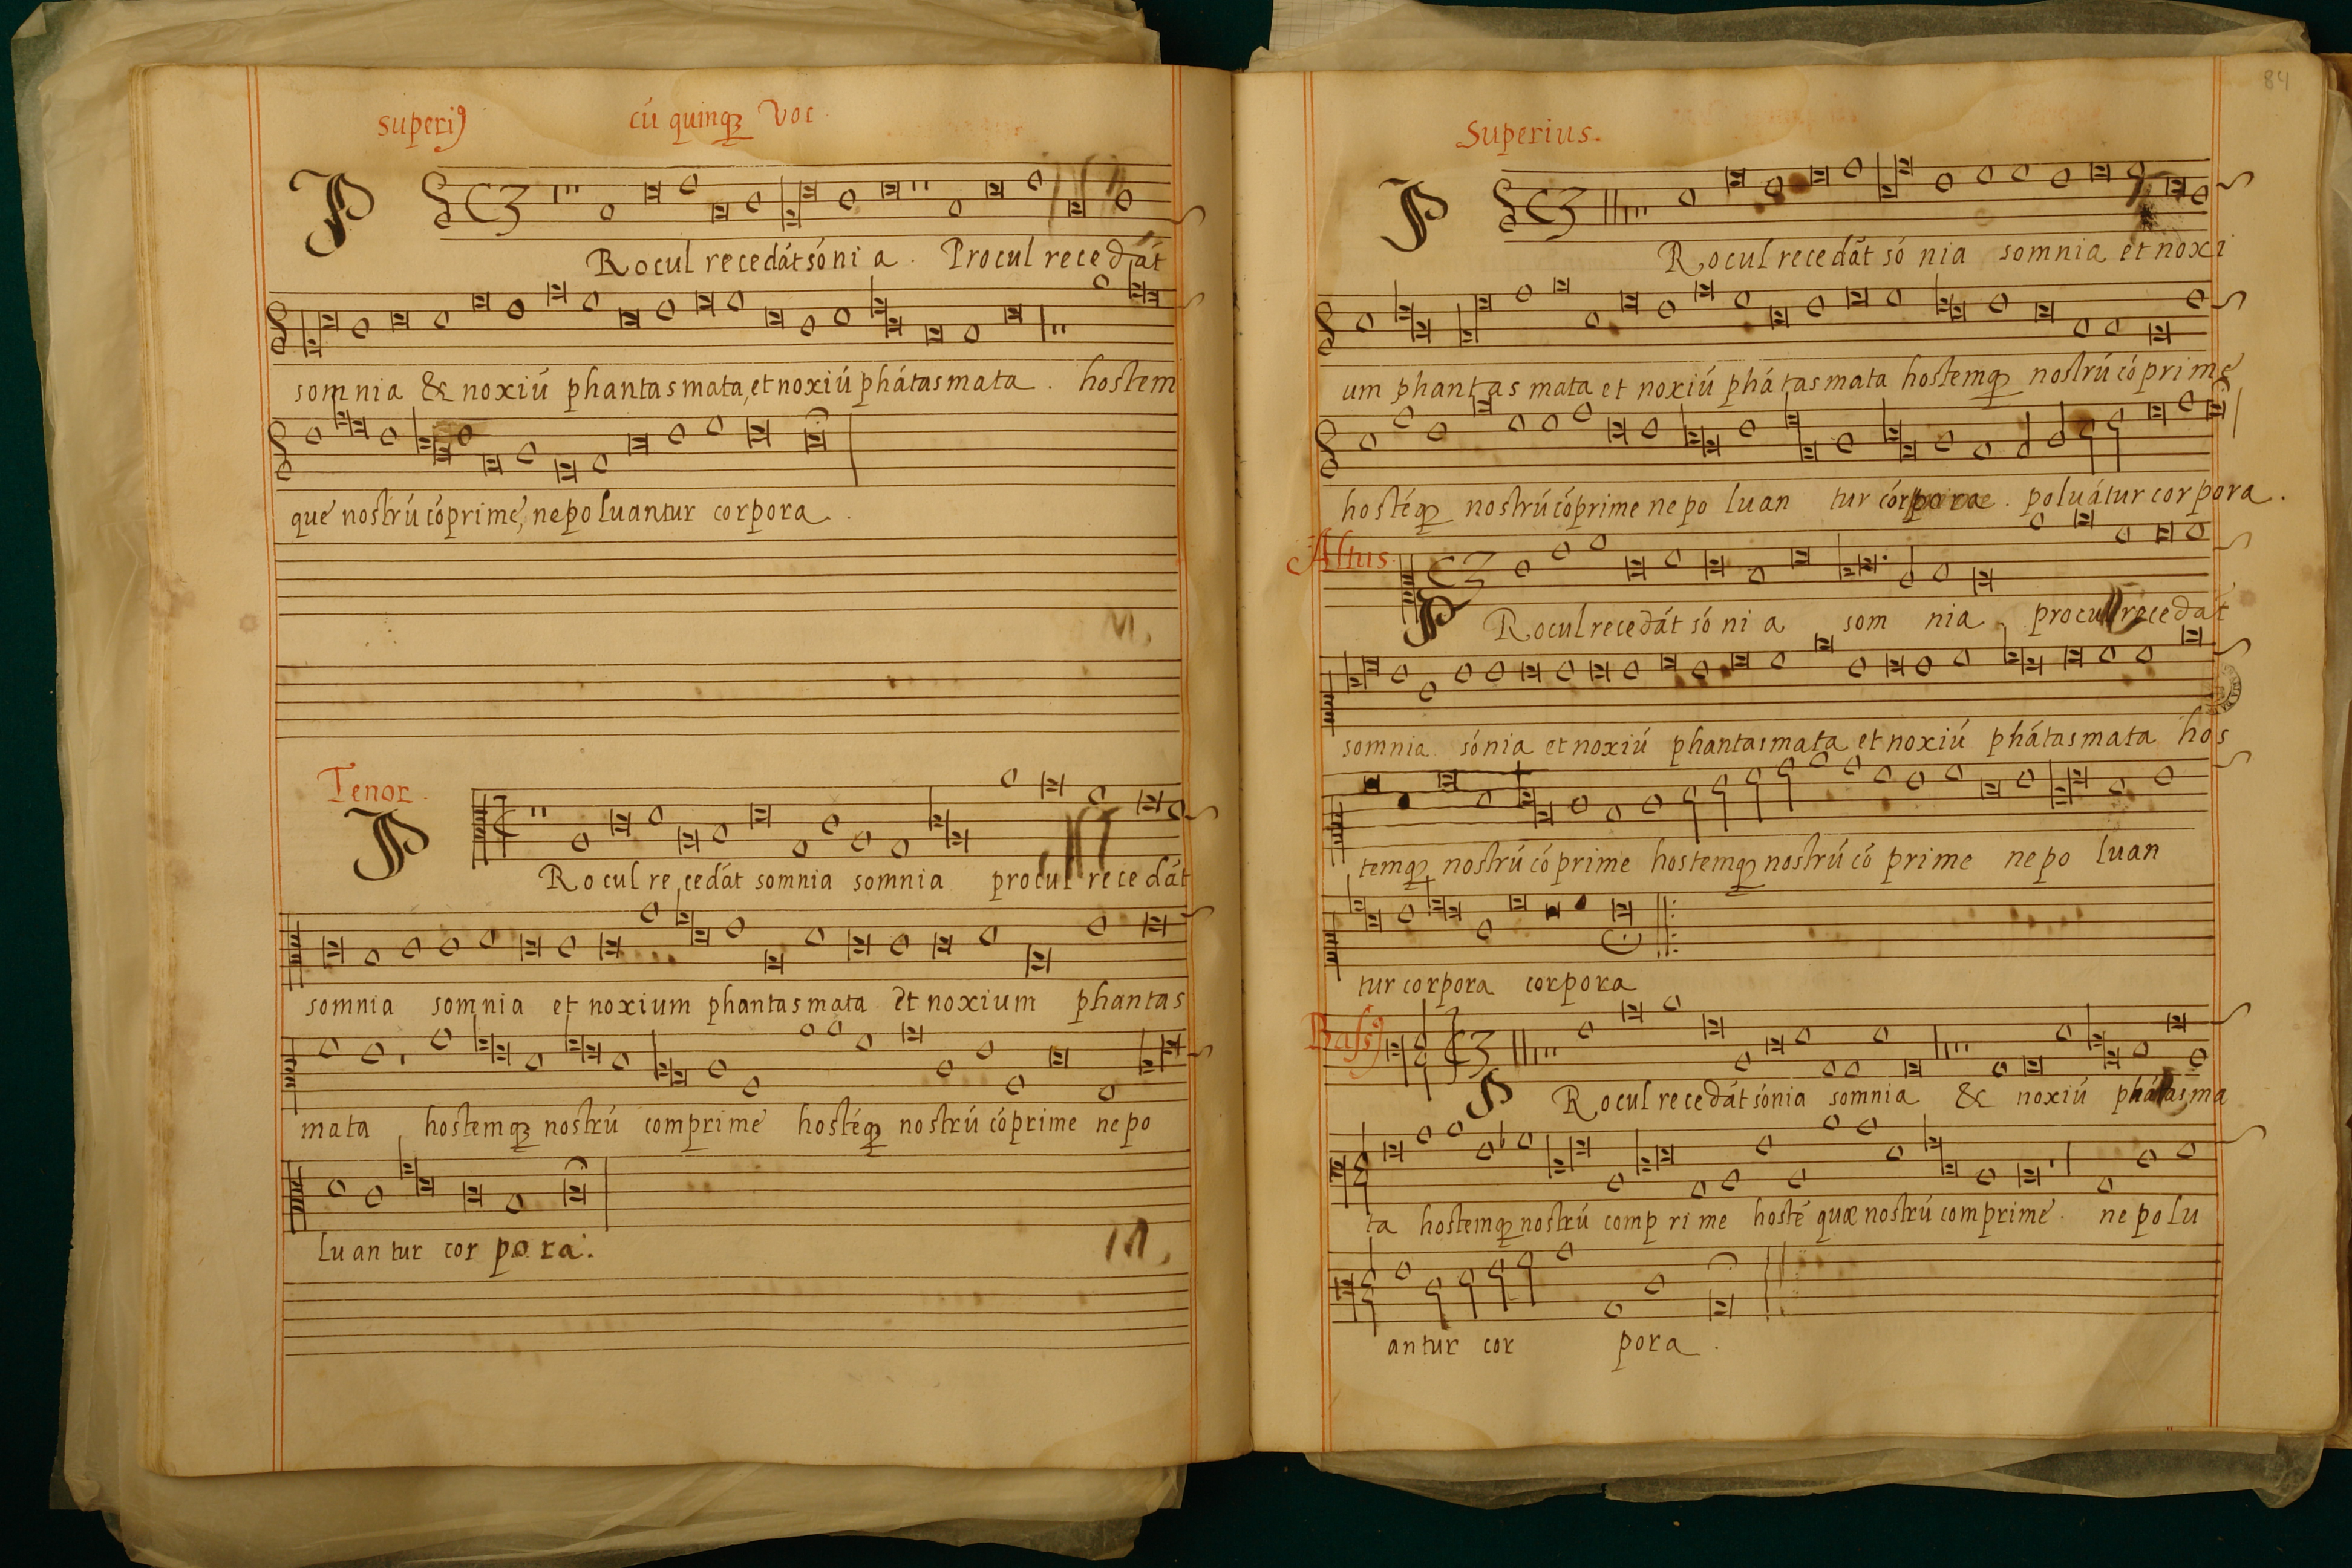 superiꝰ cú quinqꝫ Voc.
P Rocul recedát sóni a. Procul recedát
somnia & noxiú phantasmata, et noxiú phátasmata. hostem
que nostrú cóprime, ne poluantur corpora.
Tenor.
P Rocul recedát somnia somnia procul recedát
somnia somnia et noxium phantasmata et noxium phantas
mata, hostemqꝫ nostrú comprime hostéqꝫ nostrú cóprime ne po
luantur corpora.
84
Superius.
P Rocul recedát só nia somnia et noxi
um phantasmata et noxiú phátasmata hostemqꝫ nostrú cóprime
hostéqꝫ nostrú cóprime ne po luan tur córpora. poluátur corpora.
Altus.
P Rocul recedát só ni a som nia, procul recedat
somnia sónia et noxiú phantasmata et noxiú phátasmata hos
temqꝫ nostrú có prime hostemqꝫ nostrú có prime ne po luan
tur corpora corpora
Basiꝰ
P Rocul recedát sónia somnia & noxiú phátasma
ta hostemqꝫ nostrú comp ri me hosté quæ nostrú comprime. ne polu
antur cor pora.